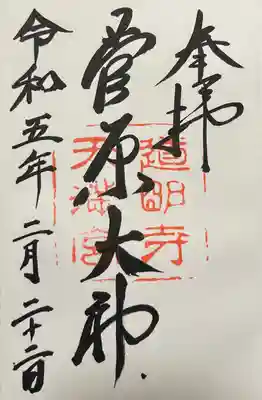 奉拝
菅原大神
道明寺
天満宮
令和五年二月二十二日